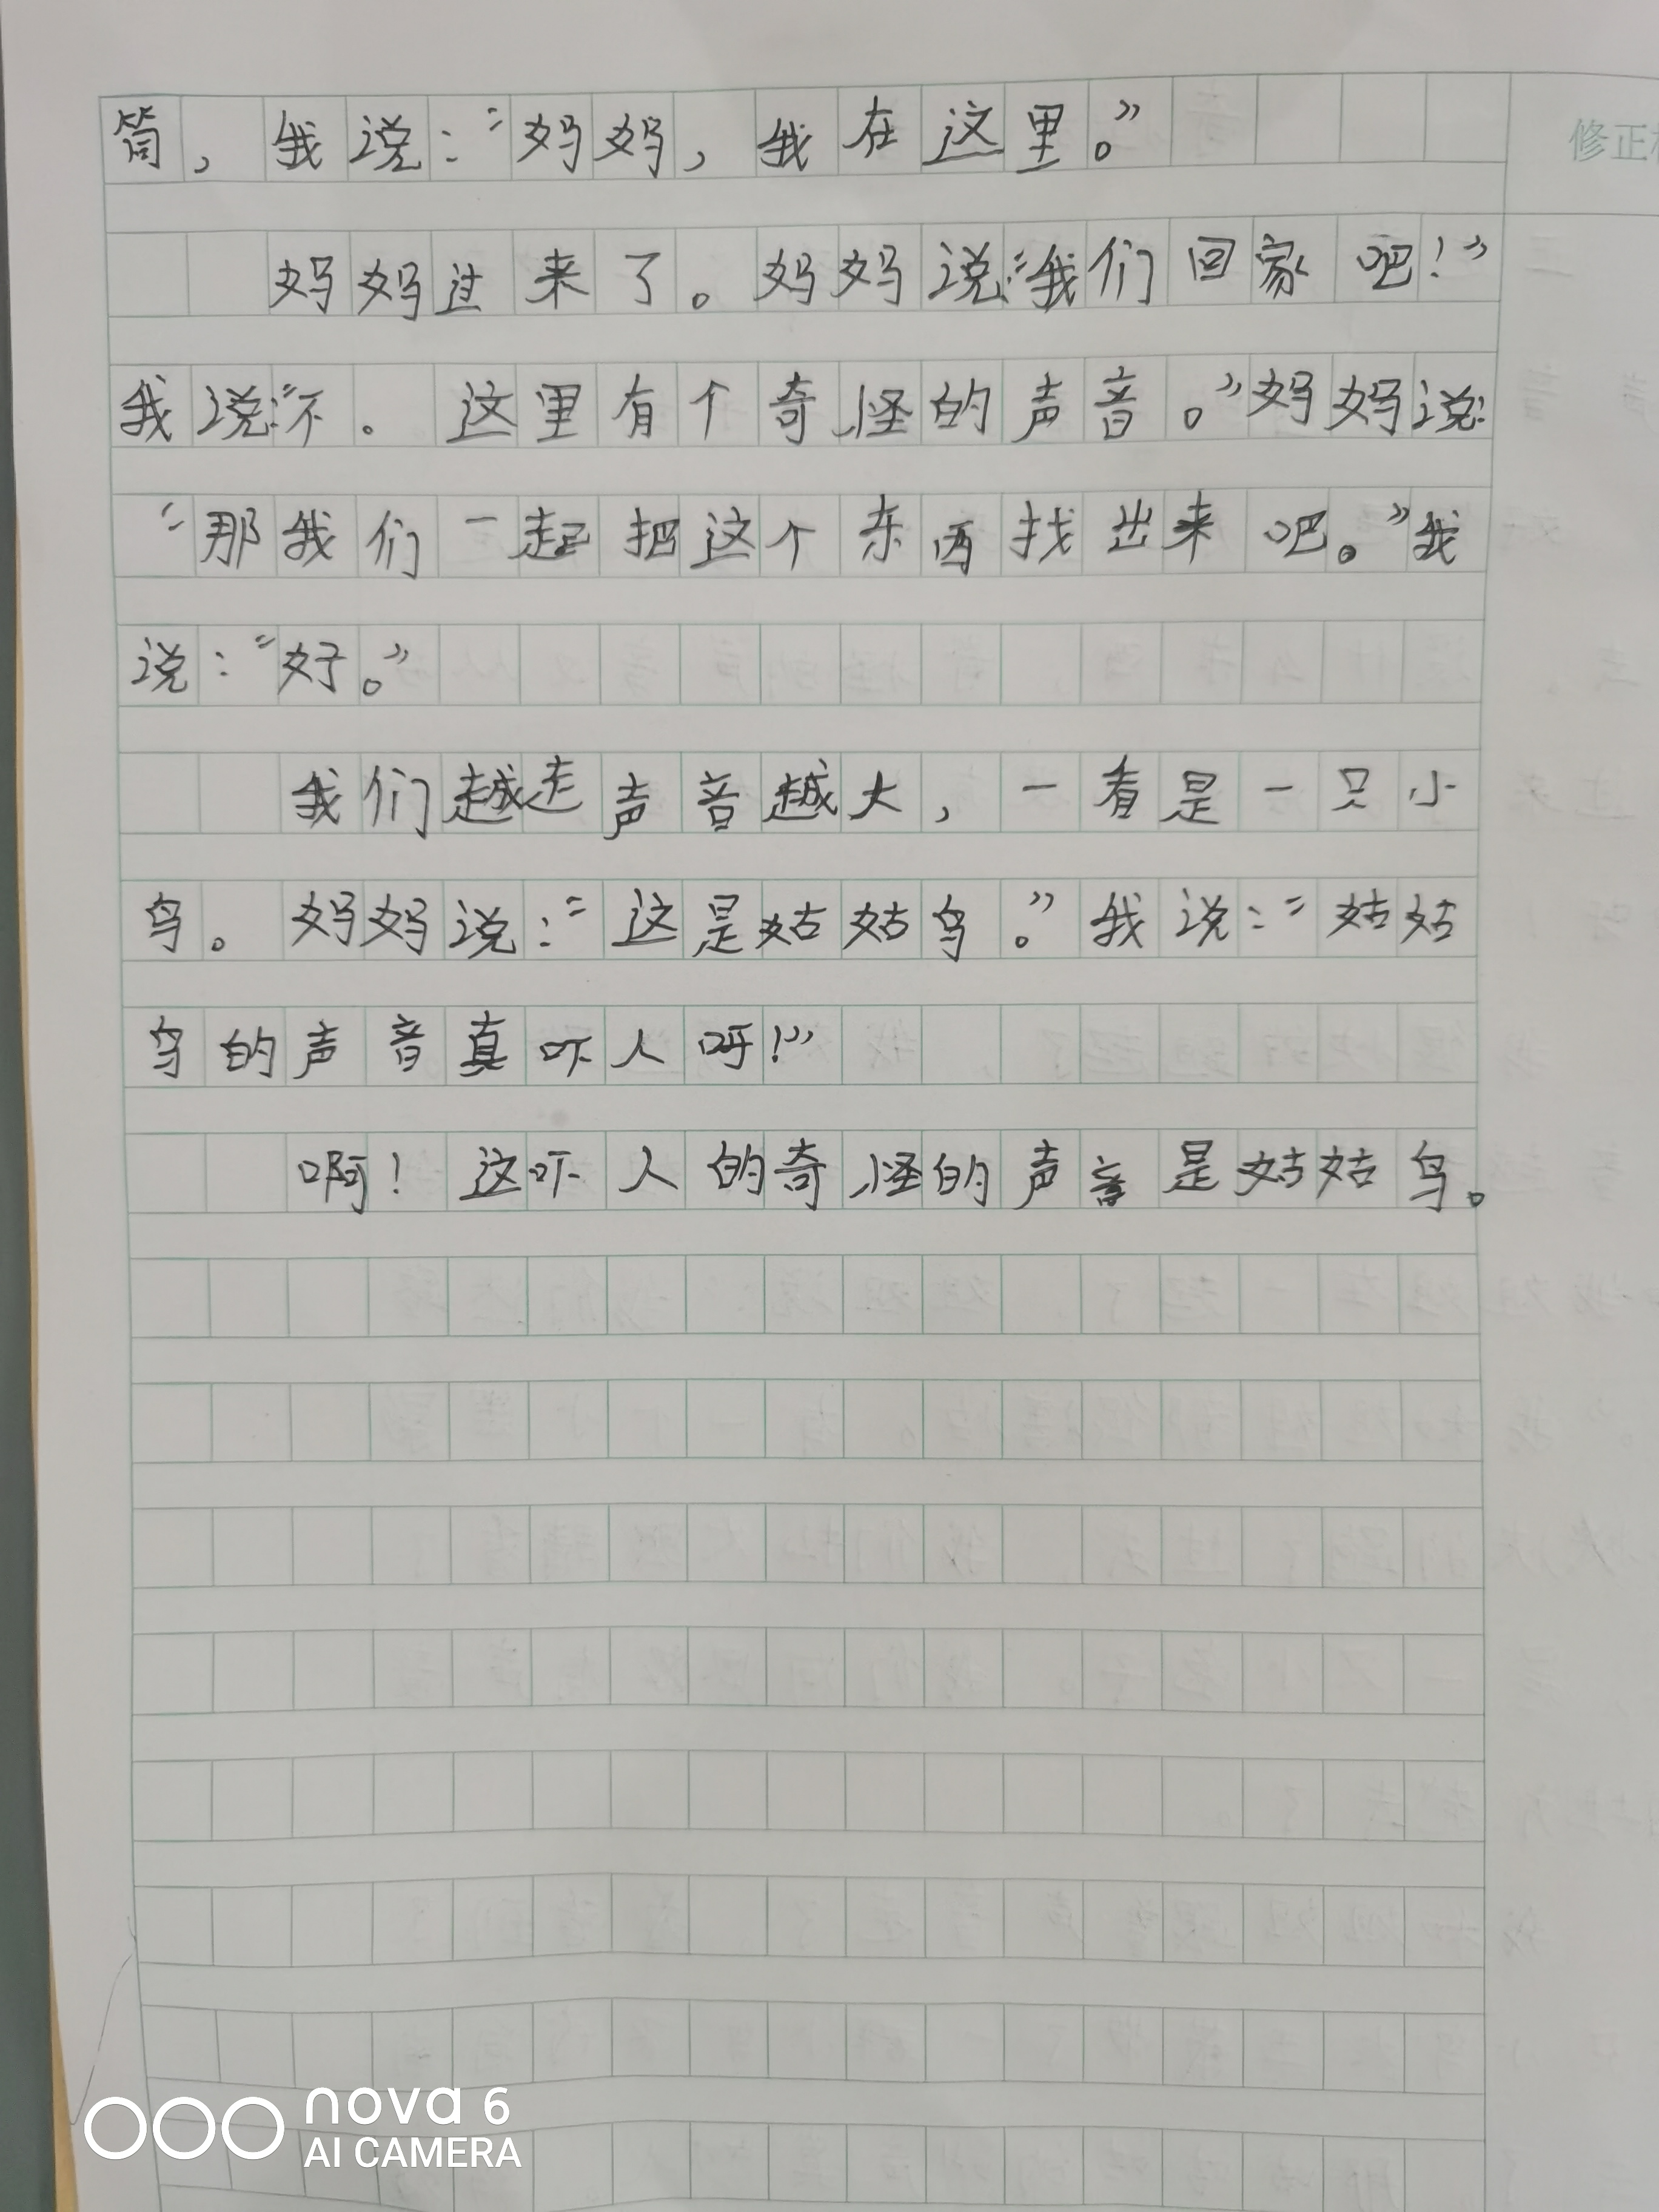 筒，我说：“妈妈，我在这里。”
修正
妈妈过来了。妈妈说：“我们回家吧！”
我说：“不。这里有个奇怪的声音。”妈妈说：
“那我们一起把这个东西找出来吧。”我
说：“好。”
我们越走声音越大，一看是一只小
鸟。妈妈说：“这是姑姑鸟。”我说：“姑姑
鸟的声音真吓人呀！”
啊！这吓人的奇怪的声音是姑姑鸟。
nova 6
AI CAMERA